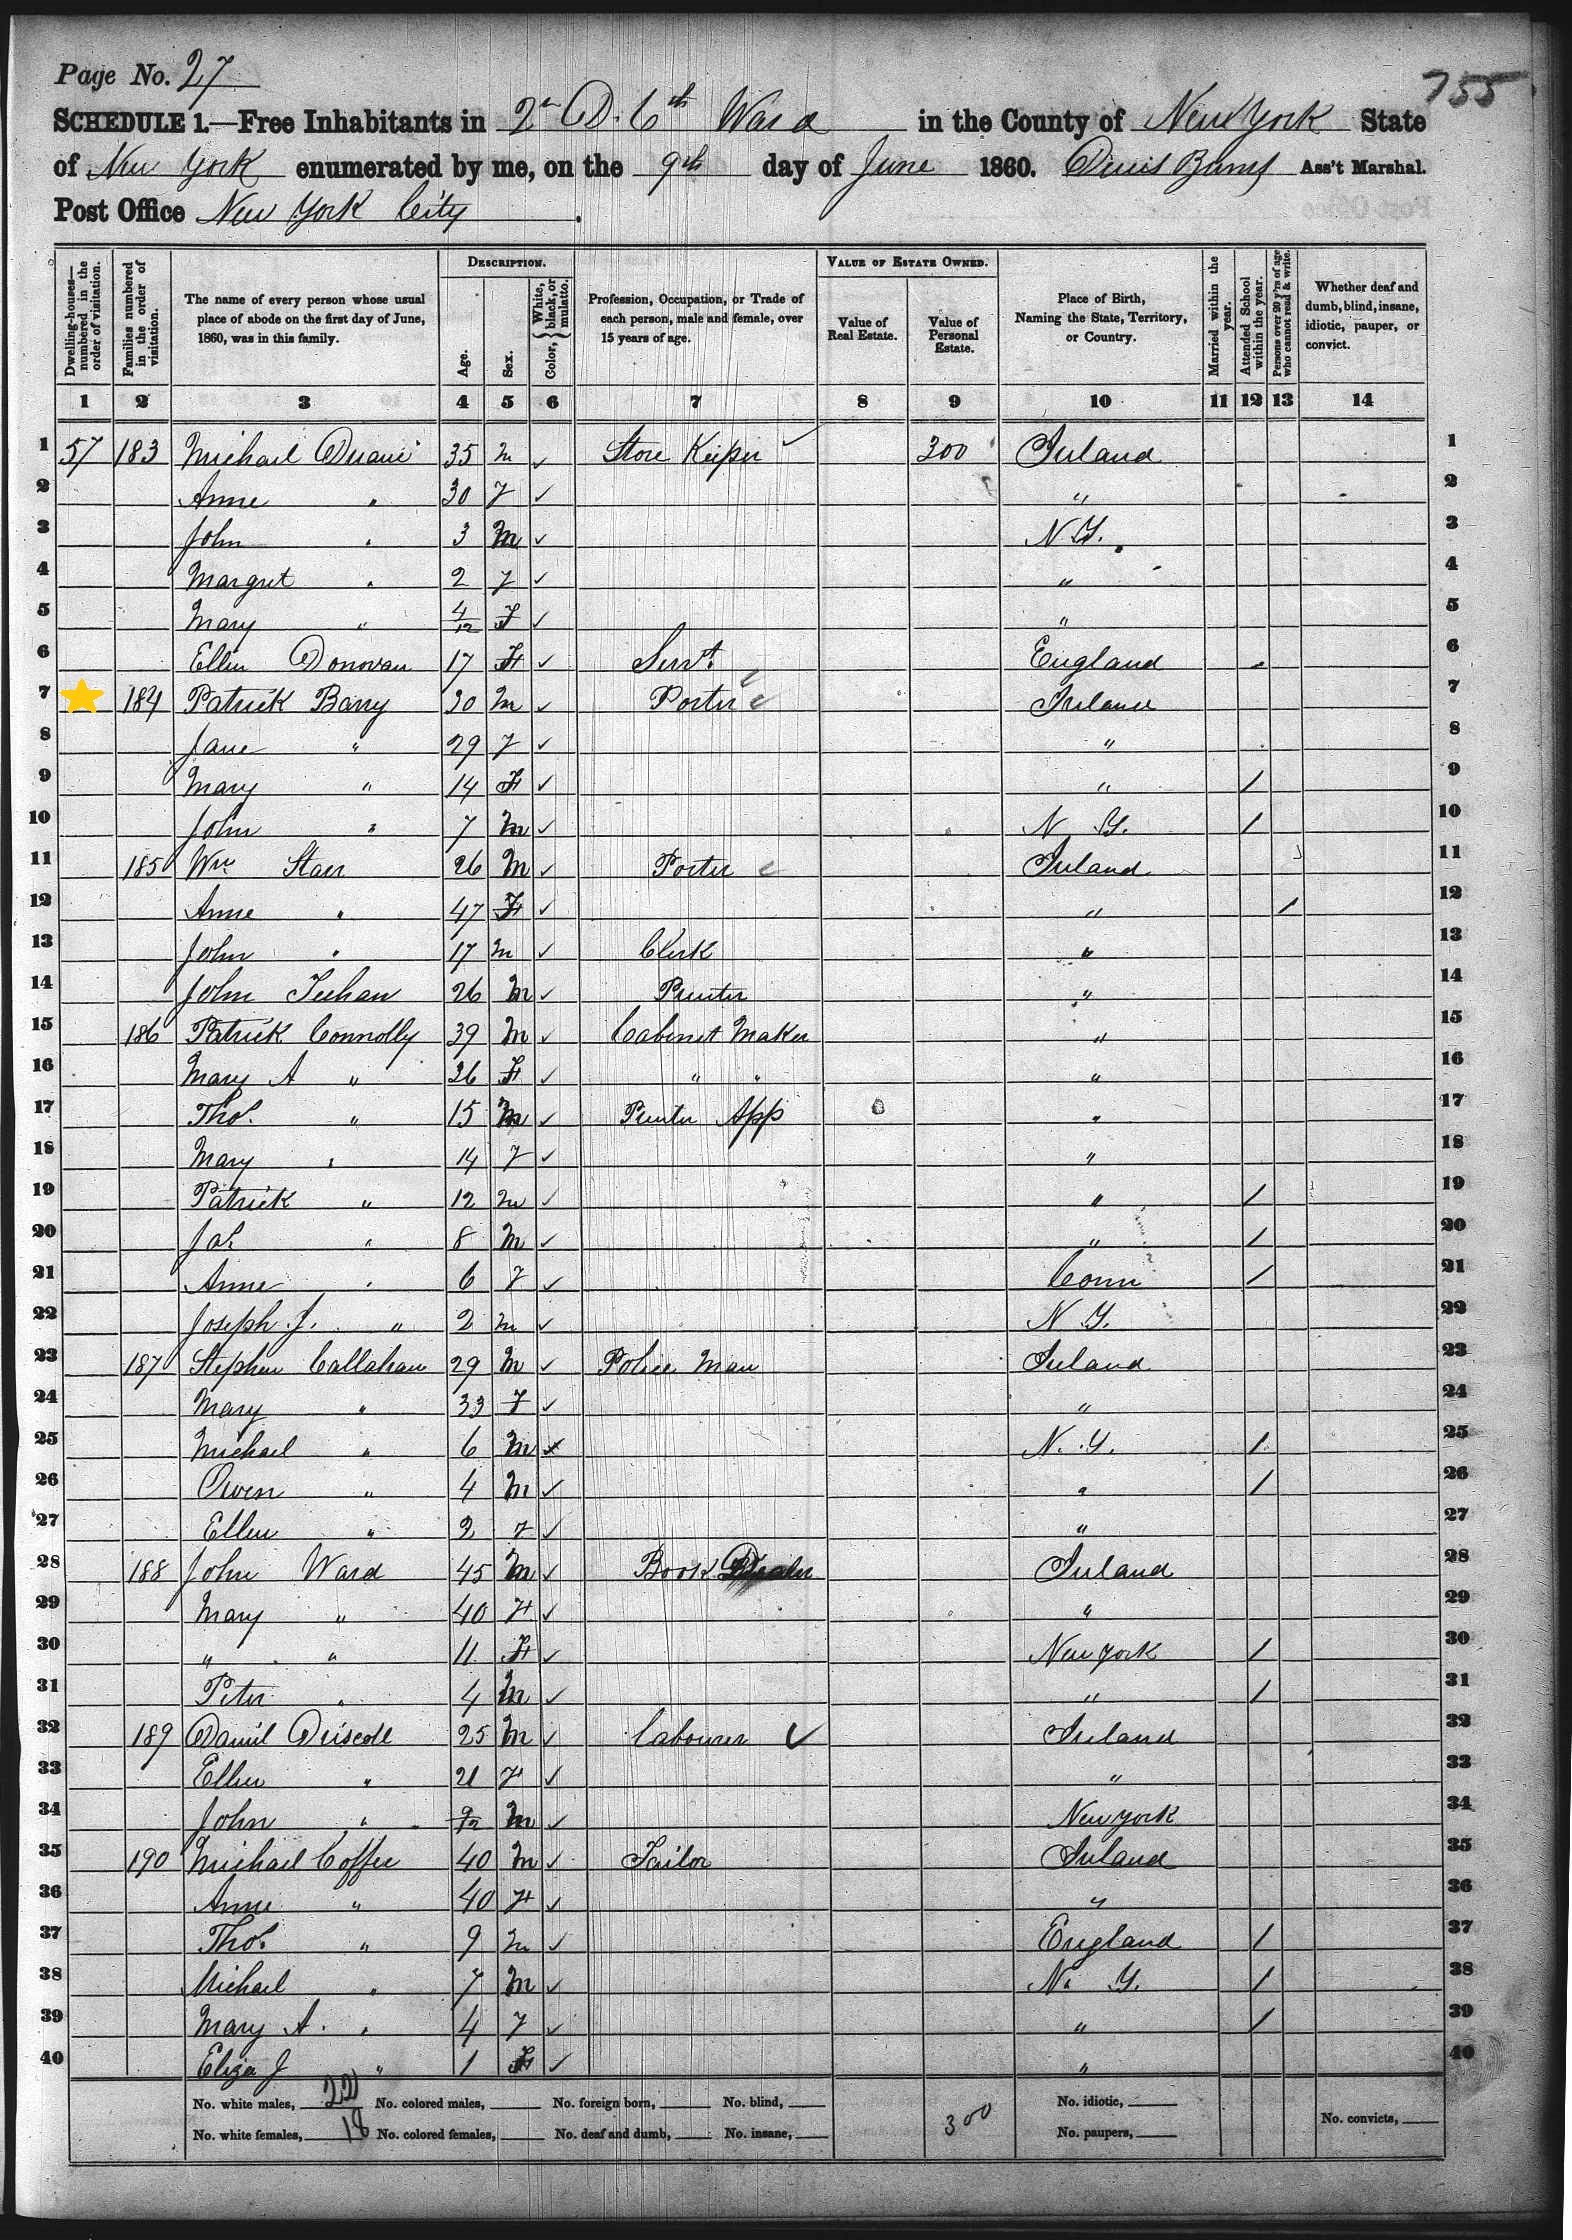 Page No. 27
755
SCHEDULE 1.—Free Inhabitants in 2n D. 6th Ward in the County of New York State
of New York enumerated by me, on the 9th day of June 1860. Ass't Marshal.
Post Office New York City.
Dwelling-houses—numbered in the order of visitation.
Families numbered in the order of visitation.
The name of every person whose usual place of abode on the first day of June, 1860, was in this family.
DESCRIPTION.
Age.
Sex.
Color, { White, black, or mulatto.
Profession, Occupation, or Trade of each person, male and female, over 15 years of age.
VALUE OF ESTATE OWNED.
Value of Real Estate.
Value of Personal Estate.
Place of Birth, Naming the State, Territory, or Country.
Married within the year.
Attended School within the year.
Persons over 20 y'rs of age who cannot read & write.
Whether deaf and dumb, blind, insane, idiotic, pauper, or convict.
1 2 3 4 5 6 7 8 9 10 11 12 13 14
1 57 183 Michael Duane 35 m ✓ Store Keeper ✓ 300 Ireland 1
2 Anne " 30 F ✓ " 2
3 John " 3 M ✓ N Y. 3
4 Margret " 2 F ✓ " 4
5 Mary " 4/12 F ✓ " 5
6 Ellen Donovan 17 F ✓ Servt. England 6
7 184 Patrick Barry 30 M ✓ Porter Ireland 7
8 Jane " 29 F ✓ " 8
9 Mary " 14 F ✓ " / 9
10 John " 7 M ✓ N Y. / 10
11 185 Wm Starr 26 M ✓ Porter Ireland 11
12 Anne " 47 F ✓ " / 12
13 John " 17 M ✓ Clerk " 13
14 John Teehan 26 M ✓ Printer " 14
15 186 Patrick Connolly 39 M ✓ Cabinet Maker " 15
16 Mary A " 36 F ✓ " " " 16
17 Thos. " 15 M ✓ Printer App " 17
18 Mary " 14 F ✓ " 18
19 Patrick " 12 M ✓ " / 19
20 Jas. " 8 M ✓ " / 20
21 Anne " 6 F ✓ Conn / 21
22 Joseph J. " 2 M ✓ N Y. 22
23 187 Stephen Callahan 29 M ✓ Police Man Ireland 23
24 Mary " 33 F ✓ " 24
25 Michael " 6 M ✓ N. Y. / 25
26 Owen " 4 M ✓ " / 26
27 Ellen " 2 F ✓ " 27
28 188 John Ward 45 M ✓ Book Dealer Ireland 28
29 Mary " 40 F ✓ " 29
30 " " 11 F ✓ New York / 30
31 Peter " 4 M ✓ " / 31
32 189 Daniel Driscoll 25 M ✓ Labourer ✓ Ireland 32
33 Ellen " 21 F ✓ " 33
34 John " 9/12 M ✓ New York 34
35 190 Michael Coffee 40 M ✓ Tailor Ireland 35
36 Anne " 40 F ✓ " 36
37 Thos. " 9 M ✓ England / 37
38 Michael " 7 M ✓ N. Y. / 38
39 Mary A. " 4 F ✓ " / 39
40 Eliza J " 1 F ✓ " 40
No. white males, 22 No. colored males, No. foreign born, No. blind, No. idiotic,
No. white females, 18 No. colored females, No. deaf and dumb, No. insane, 300 No. paupers, No. convicts,